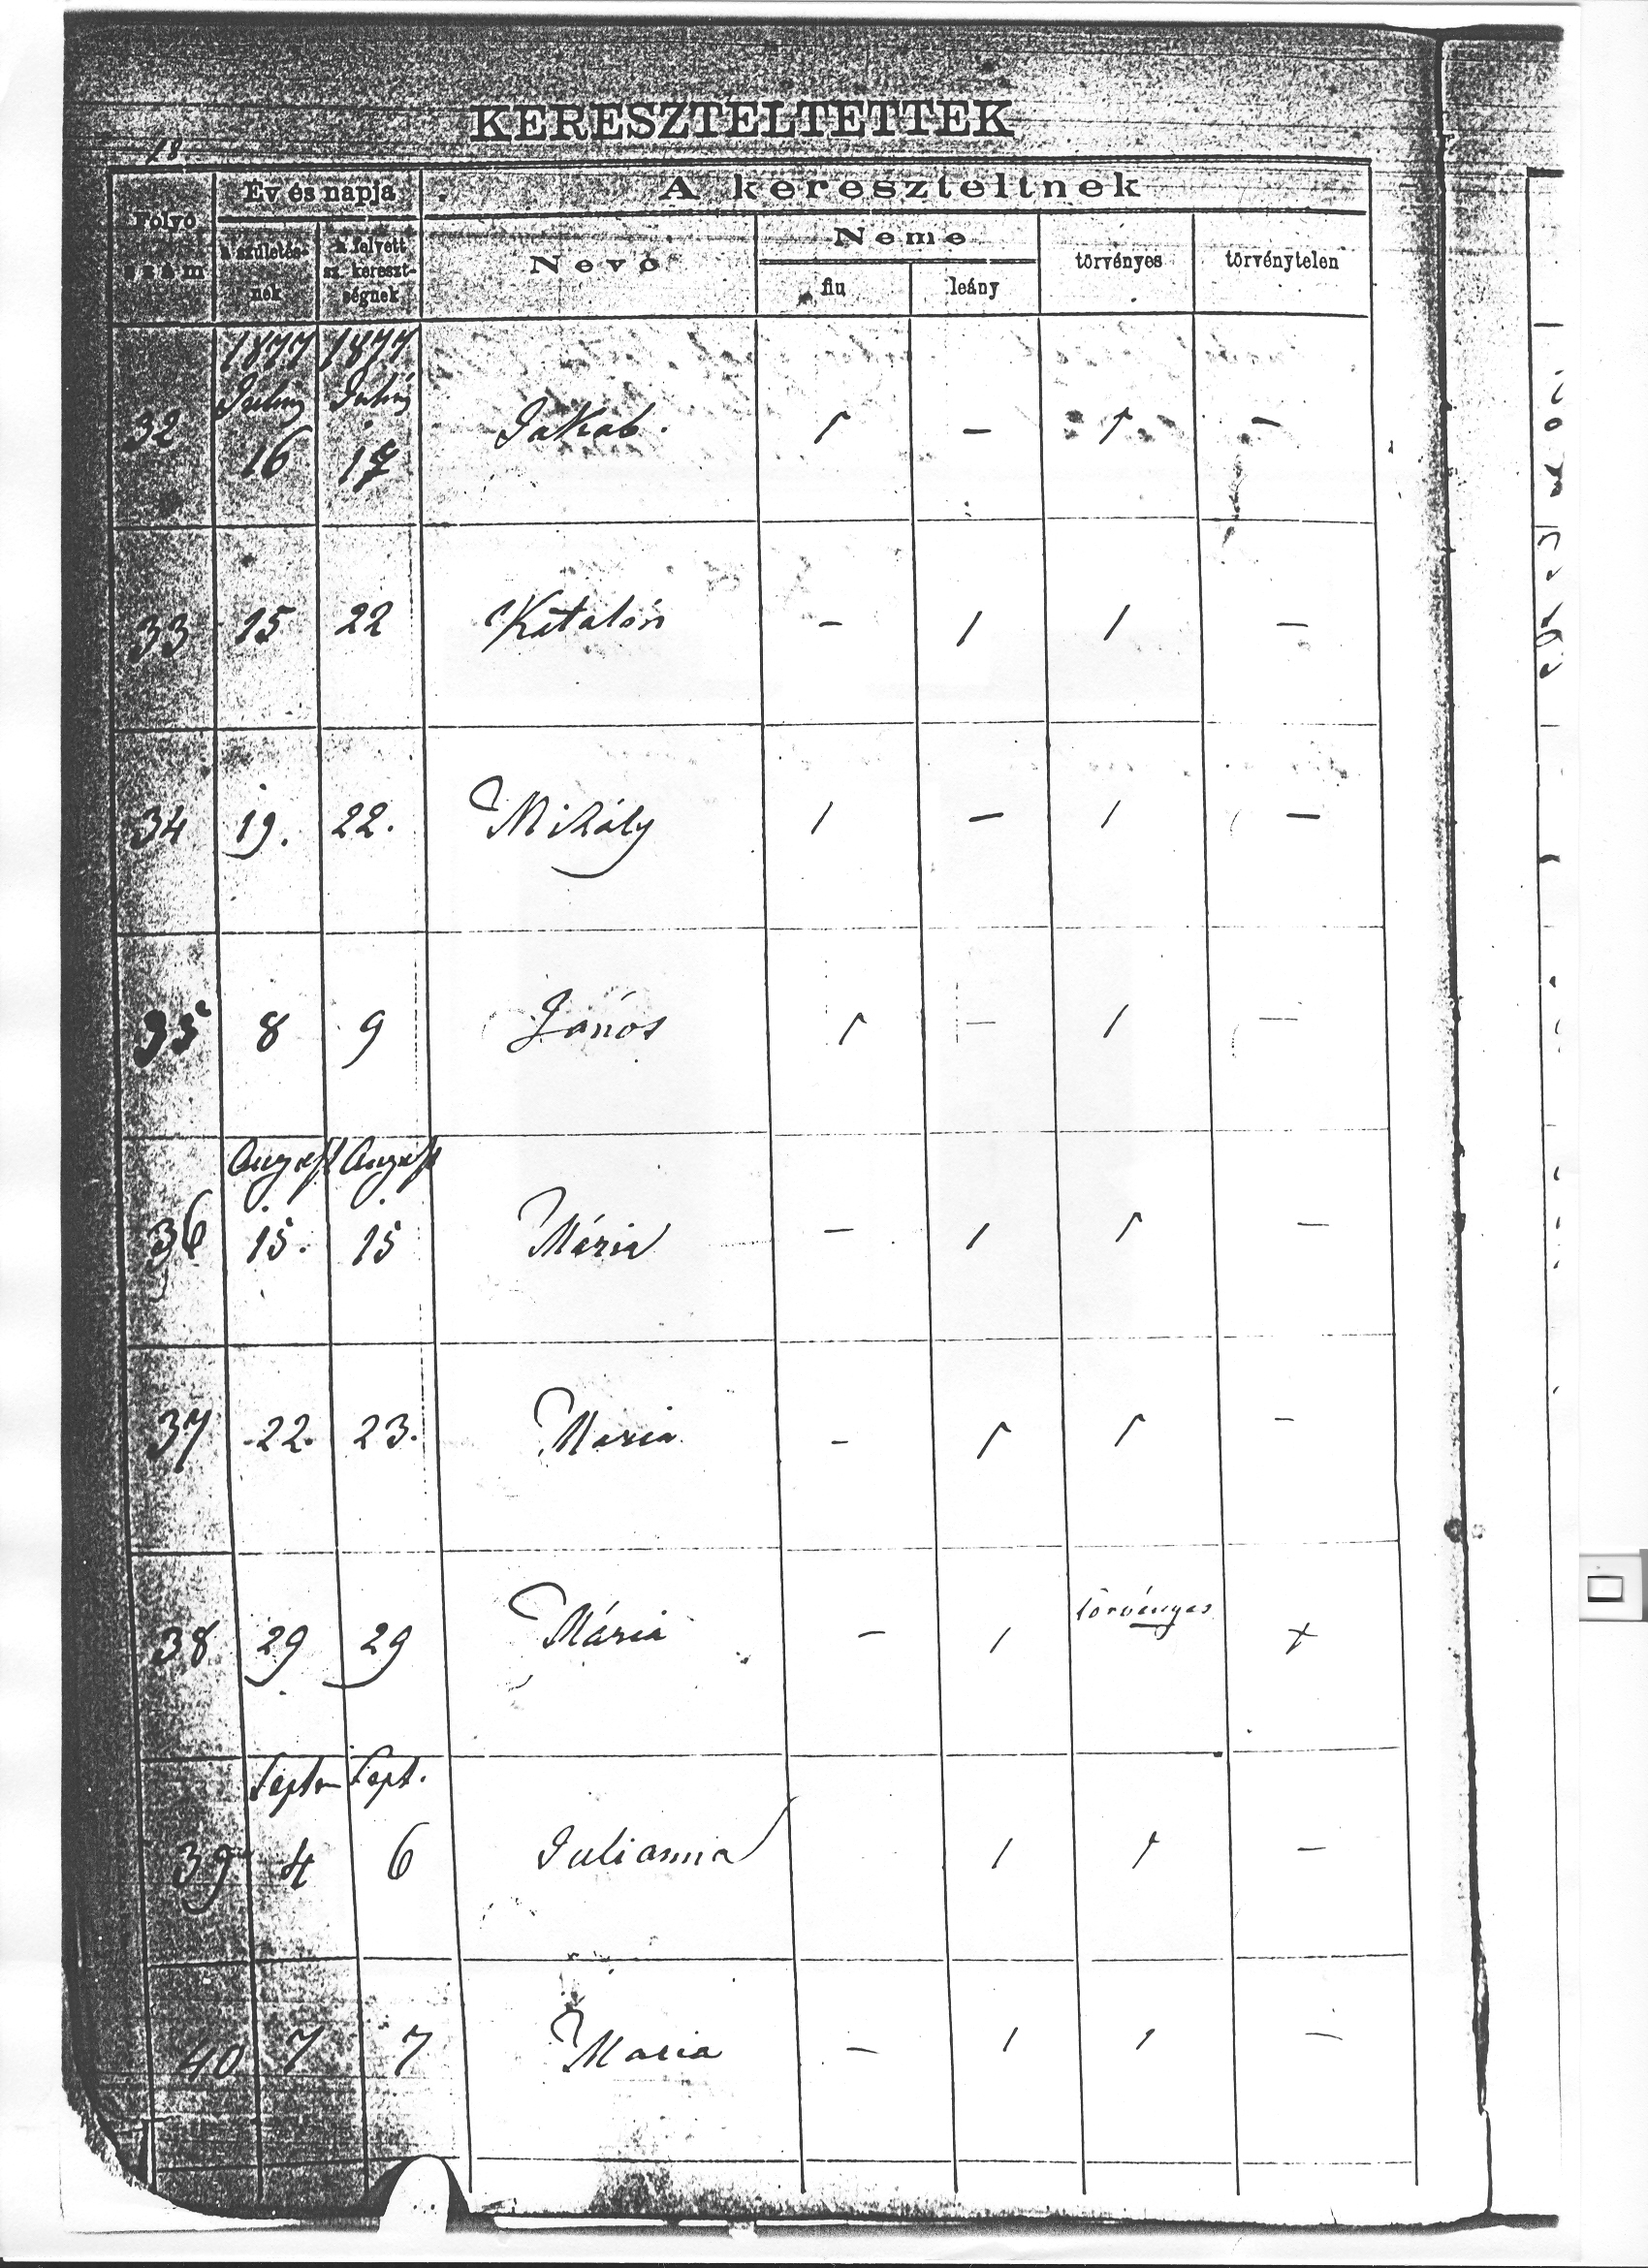 KERESZTELTETTEK
18
Folyó szám
Év és napja
A kereszteltnek
a születés-nek
a felvett sz. kereszt-ségnek
Neve
Neme
fiu
leány
törvényes
törvénytelen
1877 1877
Julius Julius
32 16 17 Jakab. 1 – 1 –
33 15 22 Katalin – 1 1 –
34 19. 22. Mihály 1 – 1 –
35 8 9 János 1 – 1 –
August August
36 15. 15 Mária – 1 1 –
37 22. 23. Maria – 1 1 –
törvényes
38 29 29 Mária – 1 +
Septem Sept.
39 4 6 Julianna 1 1 –
40 7 7 Maria – 1 1 –